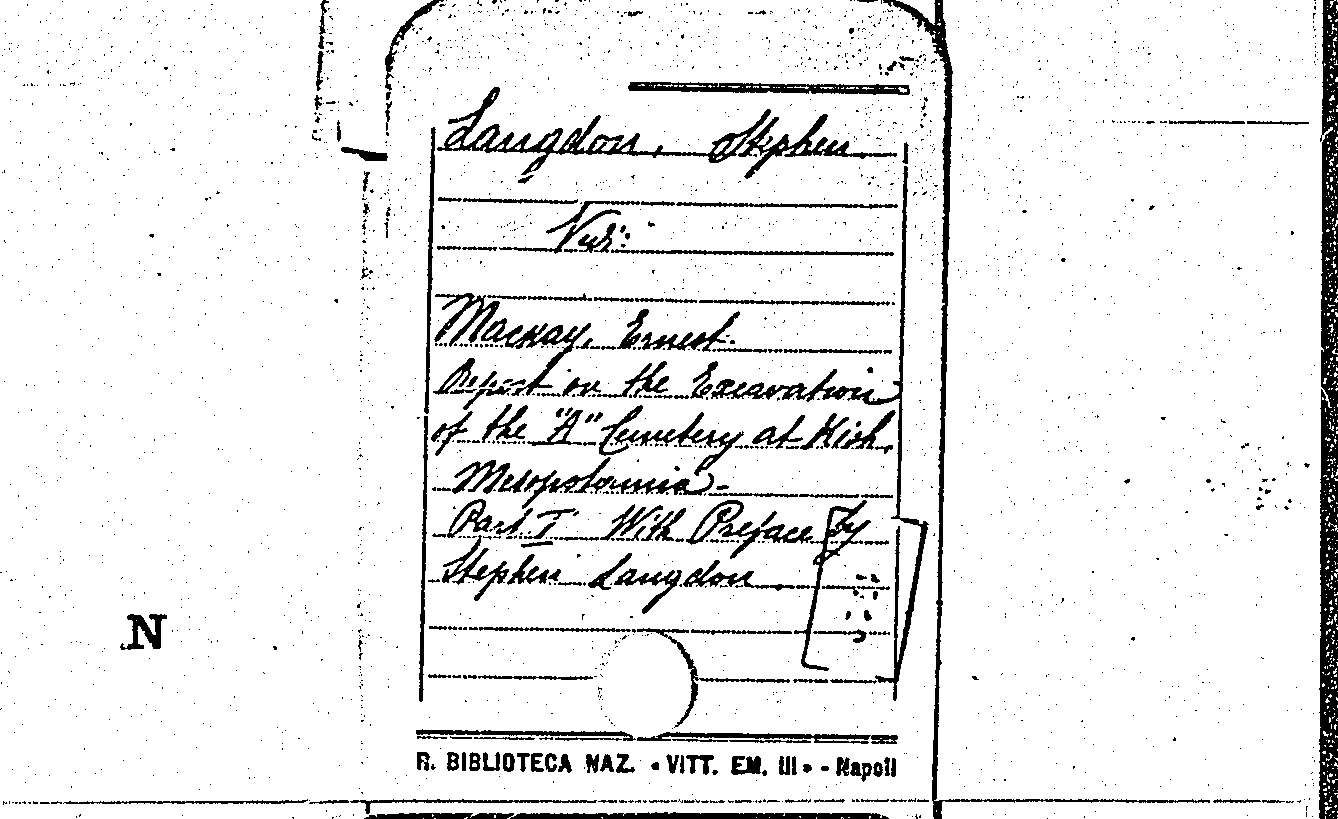 Langdon, Stephen
Vedi:
Mackay, Ernest.
Report on the Excavation
of the "A" Cemetery at Kish,
Mesopotamia -
Part I With Preface by
Stephen Langdon.
N
R. BIBLIOTECA NAZ. « VITT. EM. III » - Napoli